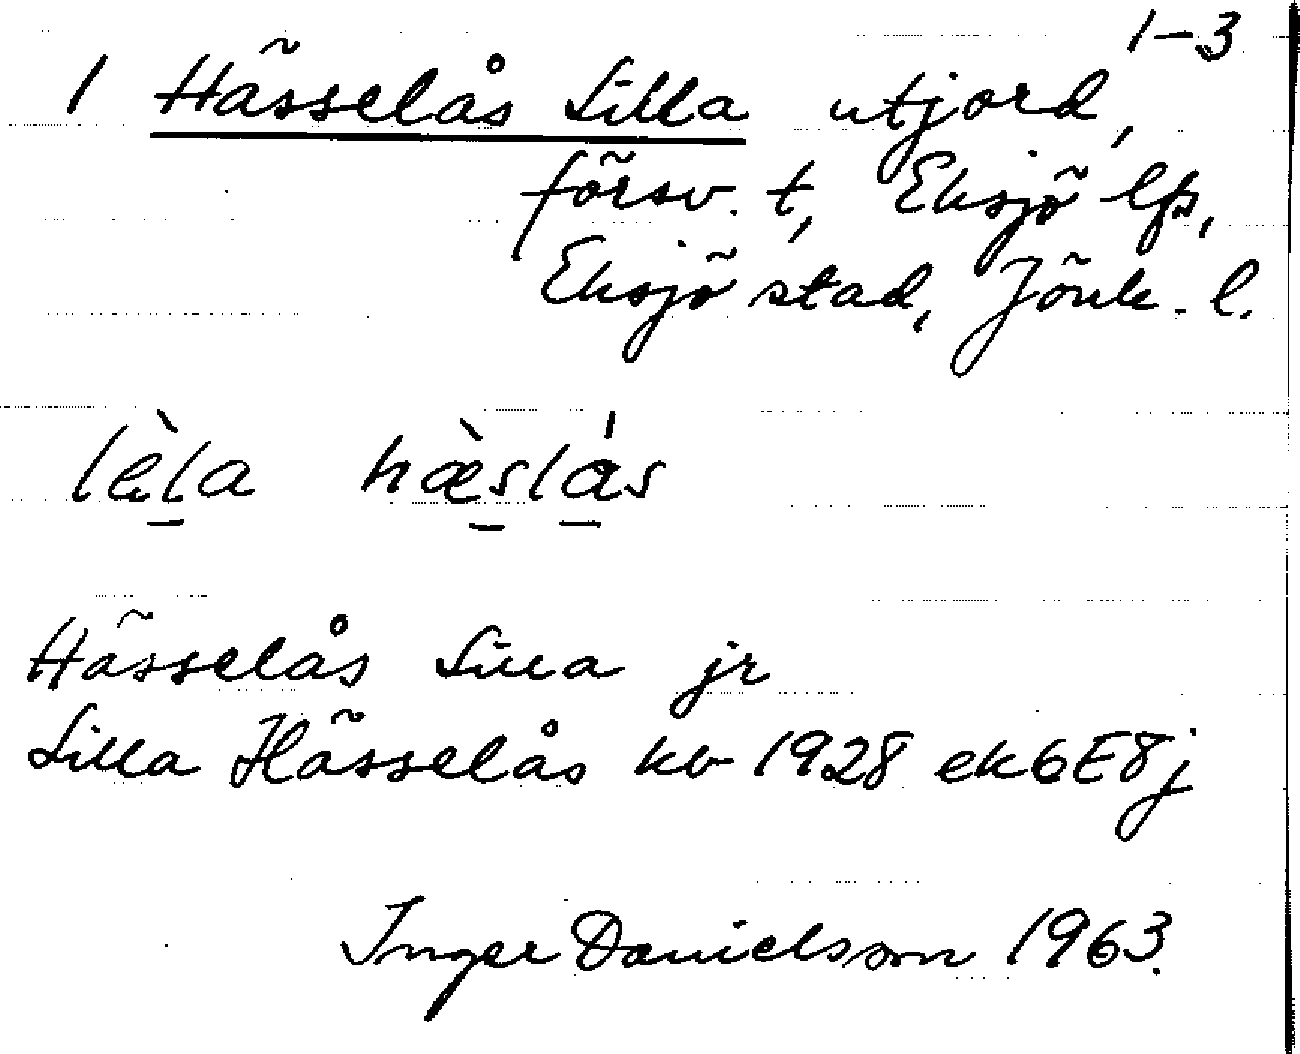 1-3
1 Hässelås Lilla utjord,
försv. t, Eksjö lfs,
Eksjö stad, Jönk. l.
lèla hæ̀slás
Hässelås Lilla jr
Lilla Hässelås kb 1928 ek6E8j
Inger Danielsson 1963.